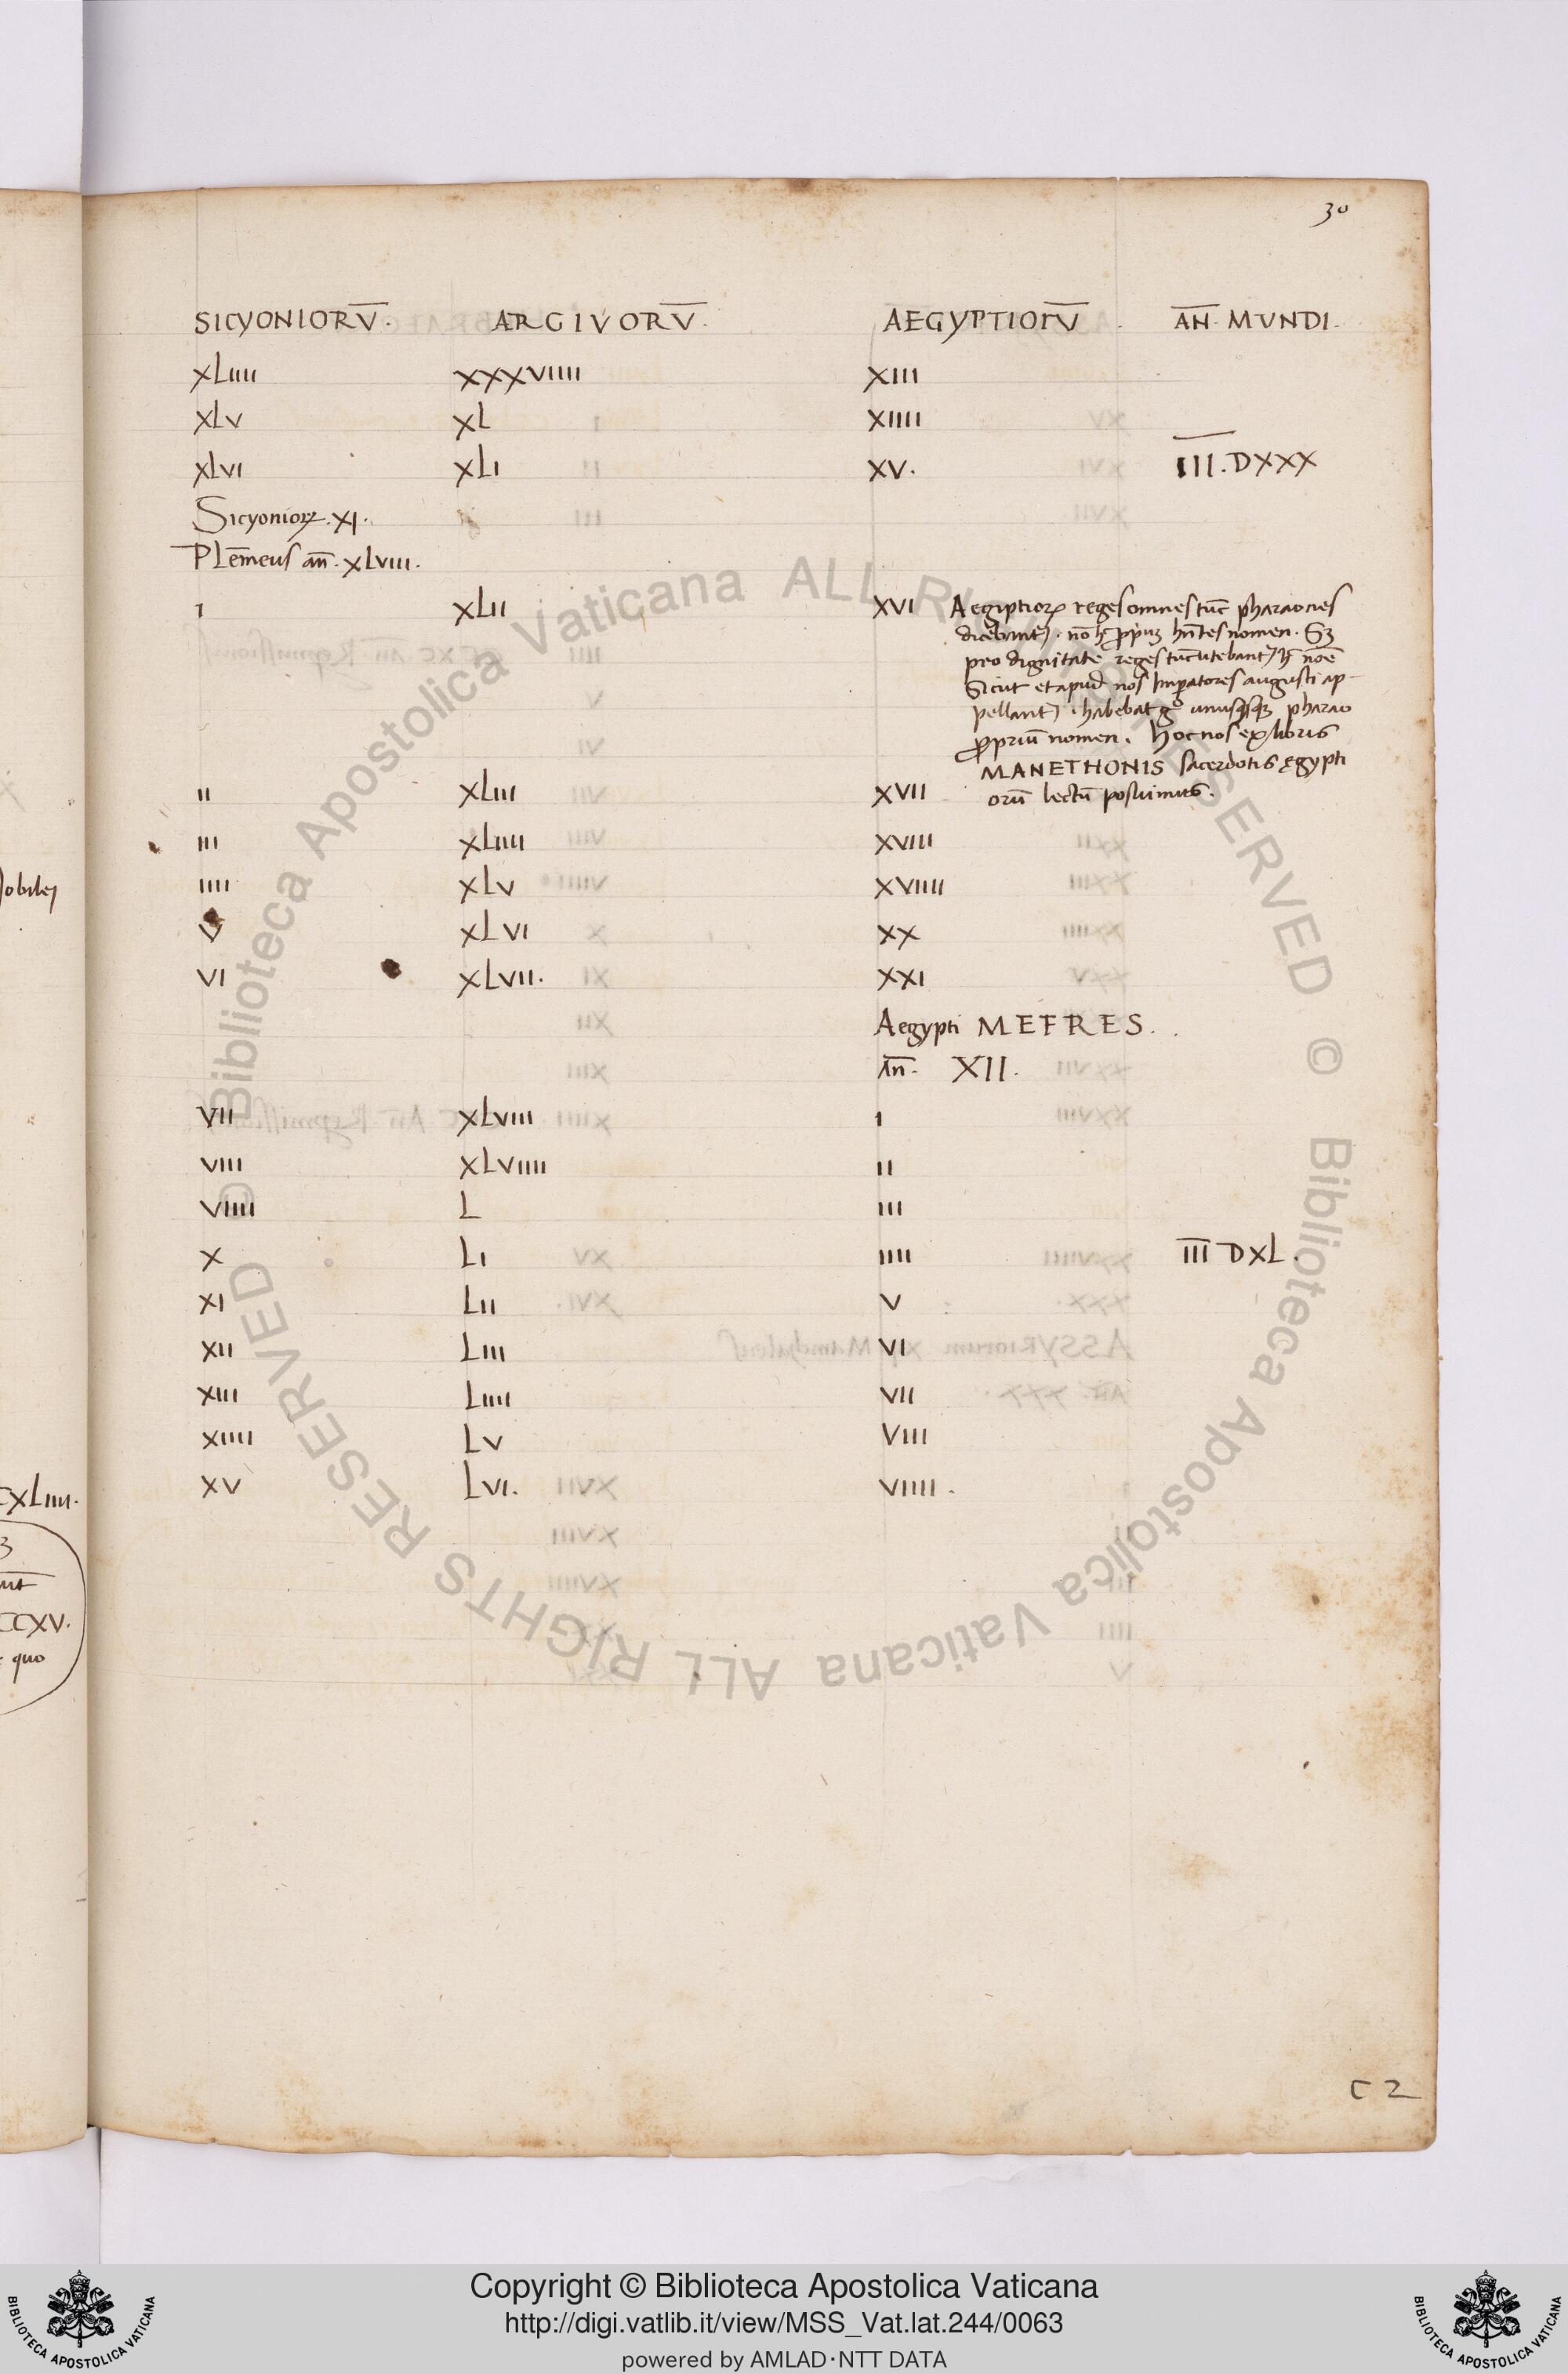 30
SICYONIORV̄. ARGIVORV̄. AEGYPTIOrV̄ AN̄. MVNDI.
XLIIII XXXVIIII XIII
XLV XL XIIII
XLVI XLI XV. I̅I̅I̅.DXXX
Sicynioꝝ.XI.
Plēmeus an̄.XLVIII.
I XLII XVI Aegiptioꝝ reges omnes tūc pharaones
dicebant᷑. nō ꝓpriū hn̄tes nomen. Sꝫ
pro dignitate reges tūc utebant᷑ noīe
Sicut et apud nos Imꝑatores augusti ap-
pellant᷑. habebat gͦ unusqsqꝫ pharao
ꝓpriū nomen. Hoc nos ex libris
MANETHONIS sacerdotis ęgypti
II XLIII XVII orū lectū posuimus.
III XLIIII XVIII
IIII XLV XVIIII
V XLVI XX
VI XLVII. XXI
Aegypti MEFRES.
An̄. XII.
VII XLVIII I
VIII XLVIIII II
VIIII L III
X LI IIII I̅I̅I̅ DXL.
XI LII V
XII LIII VI
XIII LIIII VII
XIIII LV VIII
XV LVI. VIIII.
C 2
CXLIIII.
CCXV.
quo
© Biblioteca Apostolica Vaticana ALL RIGHTS RESERVED
© Biblioteca Apostolica Vaticana ALL RIGHTS RESERVED
BIBLIOTECA APOSTOLICA VATICANA
Copyright © Biblioteca Apostolica Vaticana
http://digi.vatlib.it/view/MSS_Vat.lat.244/0063
powered by AMLAD·NTT DATA
BIBLIOTECA APOSTOLICA VATICANA